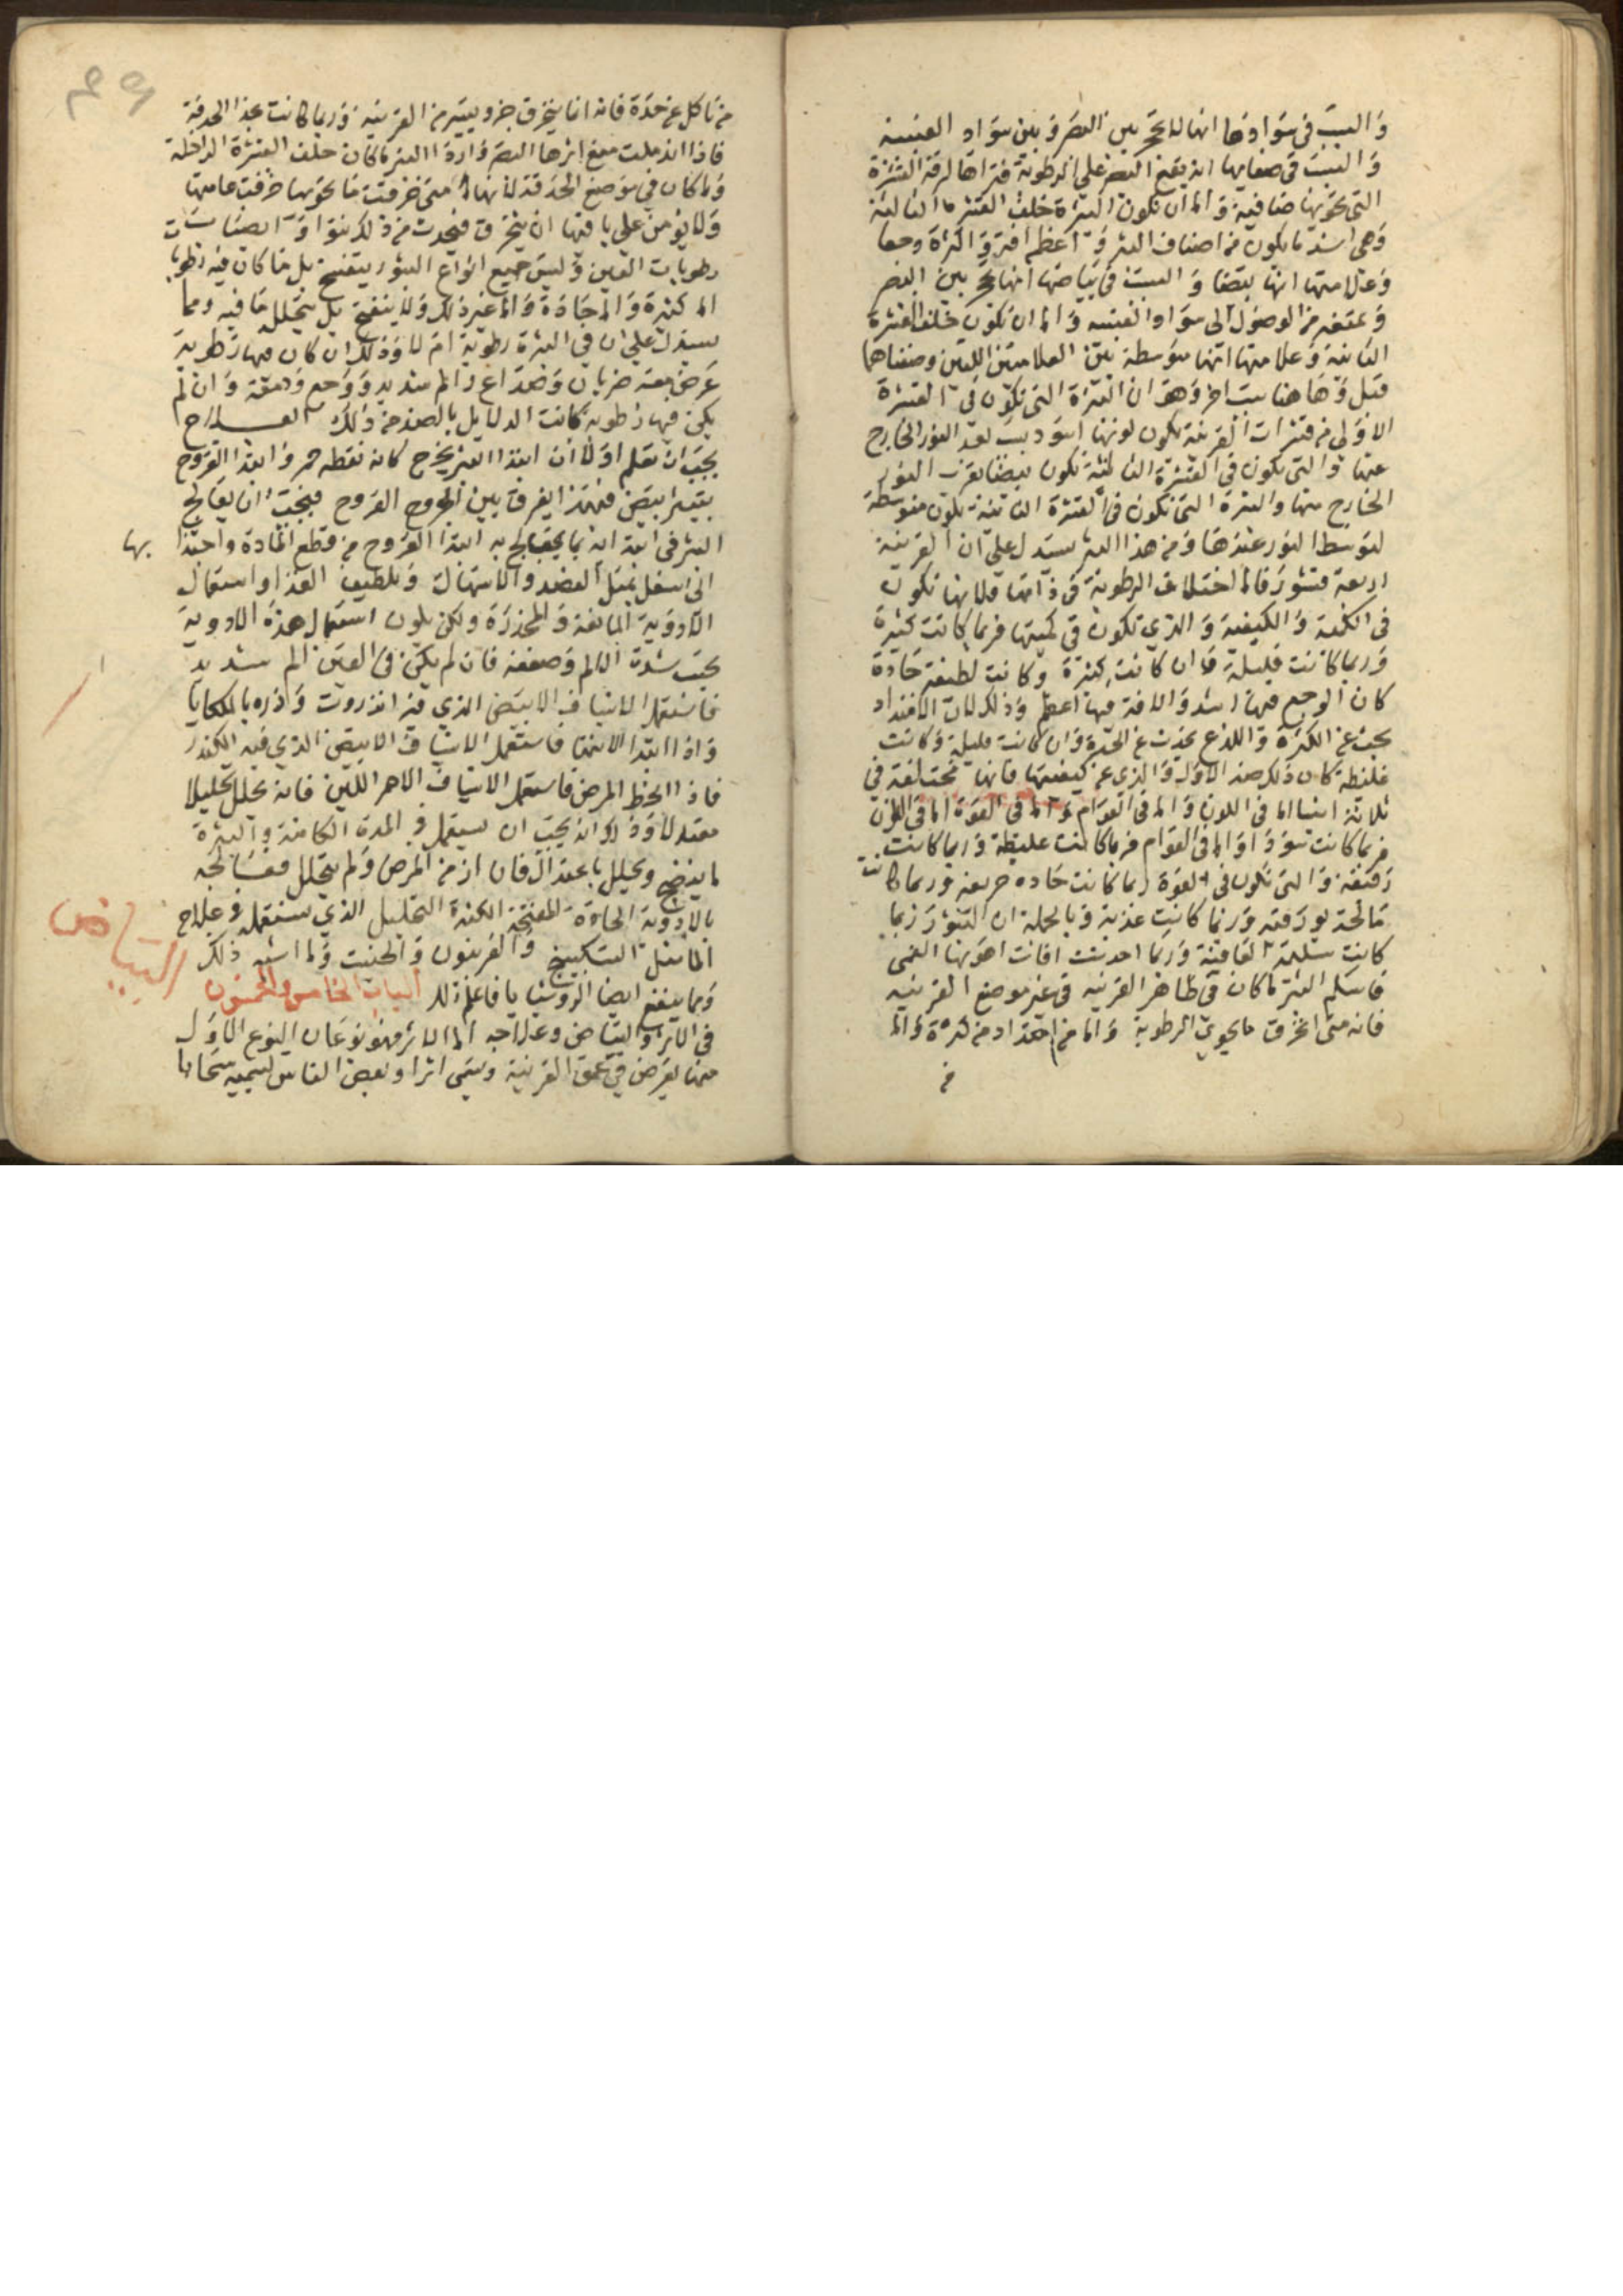 والسبب في سوادها انها لا تحجز بين البصر وبين سواد العنبيه
والسبب في صفايها انه يقع البصر علي الرطوبة فتراها لرقة القشرة
التي تحويها صافية واما ان تكون البثرة خلف القشرة الثالثة
وهي اشد ما يكون من اصناف البثر واعظم افة واكثرة وجعا
وعلامتها انها بيضا والسبب في بياضها انها تحجز بين البصر
وتمنعه من الوصول الي سواد العنبيه واما ان تكون خلف القشرة
الثانية وعلامتها انها متوسطة بين العلامتين اللتين وصفناهما
قبل وهاهنا سبب اخر وهو ان البثرة التي تكون في القشرة
الاولي من قشرات القرنية يكون لونها اسود بسبب بعد النور الخارج
عنها والتي تكون في القشرة الثالثة تكون بيضا بقرب النور
الخارج منها والبثرة التي تكون في القشرة الثانية تكون متوسطة
لتوسط النور عندها ومن هذا البثر يستدل علي ان القرنية
اربعة قشور فاما اختلاف الرطوبة في ذاتها فلانها تكون
في الكمية والكيفية والذي تكون في كميتها فربما كانت كثيرة
وربما كانت قليلة فان كانت كثيرة وكانت لطيفة حادة
كان الوجع فيها اشد والافة فيها اعظم وذلك لان الامتداد
يحدث عن الكثرة واللذع يحدث عن الحدة وان كانت قليلة وكانت
غليظة كان ذلك ضد الاول والذي عن كيفيتها فانها مختلفة في
ثلاثة اشيا اما في اللون واما في القوام واما في القوة اما في اللون
فربما كانت سودا واما في القوام فربما كانت غليظة وربما كانت
رقيقة والتي تكون في القوة ربما كانت حاده حريفه وربما كانت
مالحة بورقيه وربما كانت عذبة وبالجملة ان البثور ربما
كانت سليمة العاقبة وربما احدثت افات اهونها العمي
فاسلم البثر ما كان في ظاهر القرنيه في غير موضع القرنيه
فانه متي انخرق ما يحوي الرطوبة واما من امتداد من كثرة واما
من
من تاكل عن حدة فانه انما ينخرق جزو يسير من القرنيه وربما كانت بحذا الحدقة
فاذا اندملت منع اثرها البصر واردا البثر ما كان خلف القشرة الداخلة
وما كان في موضع الحدقة لانها متي خرقت ما يحويها خرقت عامتها
ولا يومن علي باقيها ان ينخرق فيحدث من ذلك نتوا وايضا سالت
رطوبات العين وليس جميع انواع البثور يتفتح بل ما كان فيه رطوبا
اما كثيرة واما حادة واما غير ذلك ولا ينفتح بل يتحلل ما فيه ومما
يستدل علي ان في البثرة رطوبة ام لا وذلك ان كان فيها رطوبة
عرض معه ضربان وصداع والم شديد ووجع ودمعة وان لم
يكن فيها رطوبة كانت الدلايل بالضد من ذلك العلاج
يجب ان تعلم اولا ان ابتدا البثر يخرج كانه نقطه حمر وابتدا القروح
بتبير ابيض فبهذا يفرق بين الجروح القروح فيجب ان يعالج
البثر في ابتدايه بما يعالج به ابتدا القروح من قطع المادة واجتذابها
الي اسفل بمثل الفصد والاسهال وتلطيف الغذا واستعمال
الادوية المانعة والمخدرة ولكن يكون استعمال هذه الادوية
بحسب شدة الالم وضعفه فان لم يكن في العين الم شديد
فاستعمل الاشياف الابيض الذي فيه انزروت واذره بالملكايا
واذا ابتدا الانتها فاستعمل الاشياف الابيض الذي فيه الكندر
فاذا انحط المرض فاستعمل الاشياف الاحمر اللين فانه يحلل تحليلا
معتدلا وذلك انه يجب ان يستعمل في المدة الكامنة والبثرة
ما ينضج ويحلل باعتدال فان ازمن المرض ولم يتحلل فعالجه
بالادوية الحادة المفتحة الكثيرة التحليل الذي يستعمل في علاج
الما مثل السكبينج والفربيون والحلتيت وما اشبه ذلك
ومما ينفع ايضا الروشنايا فاعلم ذلك الباب الخامس والخمسون
البياض
في الاثر والبياض وعلاجه اما الاثر فهو نوعان النوع الاول
منها يعرض في عمق القرنية ويسمي اثرا وبعض الناس يسميه سحابا